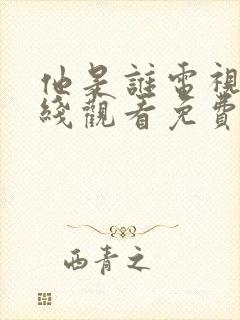 他是誰電視
綫觀看免費
西青之